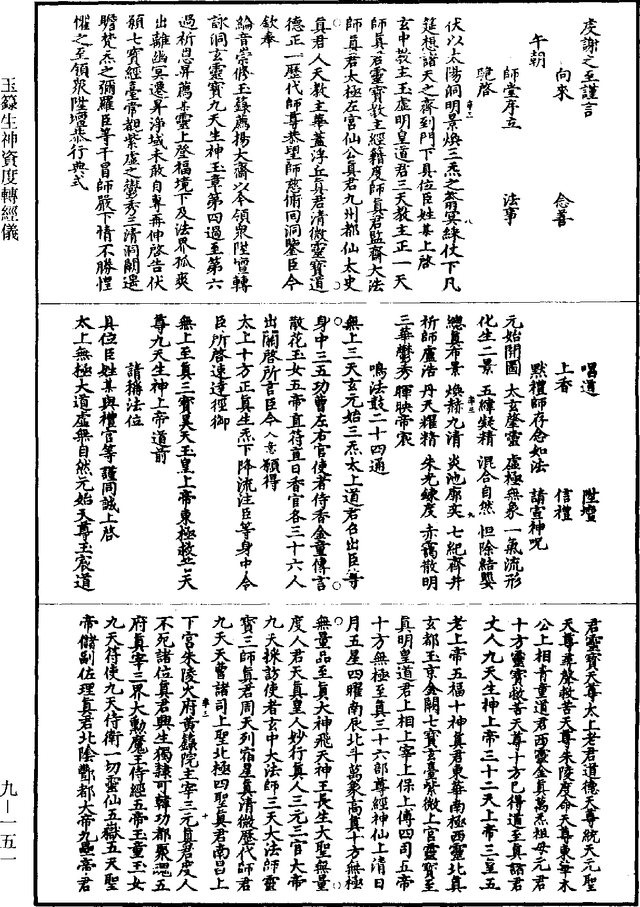 虔謝之至謹言
午朝
向來　念善
師堂序立　法事
覽啓
伏以太陽洞明景煥三炁之
筵想諸天之齊到門下具位臣姓某上啓
玄中教主玉虛明皇道君三天教主正一天
師真君靈寶教主經籍度師真君監齋大法
師真君太極左宮仙公真君九州都仙太史
真君人天教主華蓋浮丘真君清微靈寶道
德正一歷代師尊恭望師慈俯同洞鑒臣今
欽奉
綸音崇修玉籙薦揚大齋以今領衆陞壇轉
詠洞玄靈寶九天生神玉章第四過至第六
過祈恩昇薦某靈上登福境下及法界孤爽
出離幽冥遷昇淨域未敢自專再伸啓告伏
願七寶經臺帝覩紫虛之鬱秀三清洞闢遥
瞻梵炁之彌羅臣等干冒師嚴下情不勝惶
懼之至領衆陞壇恭行典式
唱道　陞壇
上香　信禮
默禮師存念如法　請宣神呪
元始開圖　太玄肇靈　虛極無象　一氣流形
化生二景　五緯凝精　混合自然　怛除結嬰
總真布景　煥赫九清　炎池廓奕　七紀齊并
祈師盧浩　丹天耀精　朱光練度　赤靄散明
三華鬱秀　暉映帝宸
鳴法鼓二十四通
無上三天玄元始三炁太上道君召出臣等
身中三五功曹左右官使者侍香金童傳言
散花玉女五帝直符直日香官各三十六人
出關啓所言臣今入意願得
太上十方正真生炁下降流注臣等身中令
臣所啓速達徑御
無上至真三寶昊天玉皇上帝東極救苦天
尊九天生神上帝道前
請稱法位
具位臣姓某與禮官等謹同誠上啓
太上無極大道虛無自然元始天尊玉宸道
君靈寶天尊太上老君道德天尊統天元聖
天尊尋聲救苦天尊朱陵度命天尊東華木
公上相青童道君西靈金真萬炁祖母元君
十方靈寶救苦天尊十方已得道至真諸君
丈人九天生神上帝三十二天上帝三皇五
老上帝五福十神真君東華南極西靈北真
玄都玉京金闕七寶玄臺紫微上宮靈寶至
真明皇道君上相上宰上保上傅四司五帝
十方無極至真三十六部尊經神仙上清日
月五星四曜南辰北斗萬象高真十方無極
無量品至真大神飛天神王長生大聖無量
度人君天真皇人妙行真人三元三官大帝
九天採訪使者玄中大法師三天大法師靈
寶三師真君周天列宿星真清微歷代師君
九天天曹諸司上聖北極四聖真君南昌上
下宮朱陵火府黃籙院主宰三元真君度人
不死諸位真君與生獨隸司韓功都聚諸五
府真宰三界大動魔王侍經五帝玉童玉女
九天符使九天侍衛一切靈仙五嶽五天聖
帝儲副佐理真君北陰酆都大帝九壘帝君
玉籙生神資度轉經儀
九－一五一